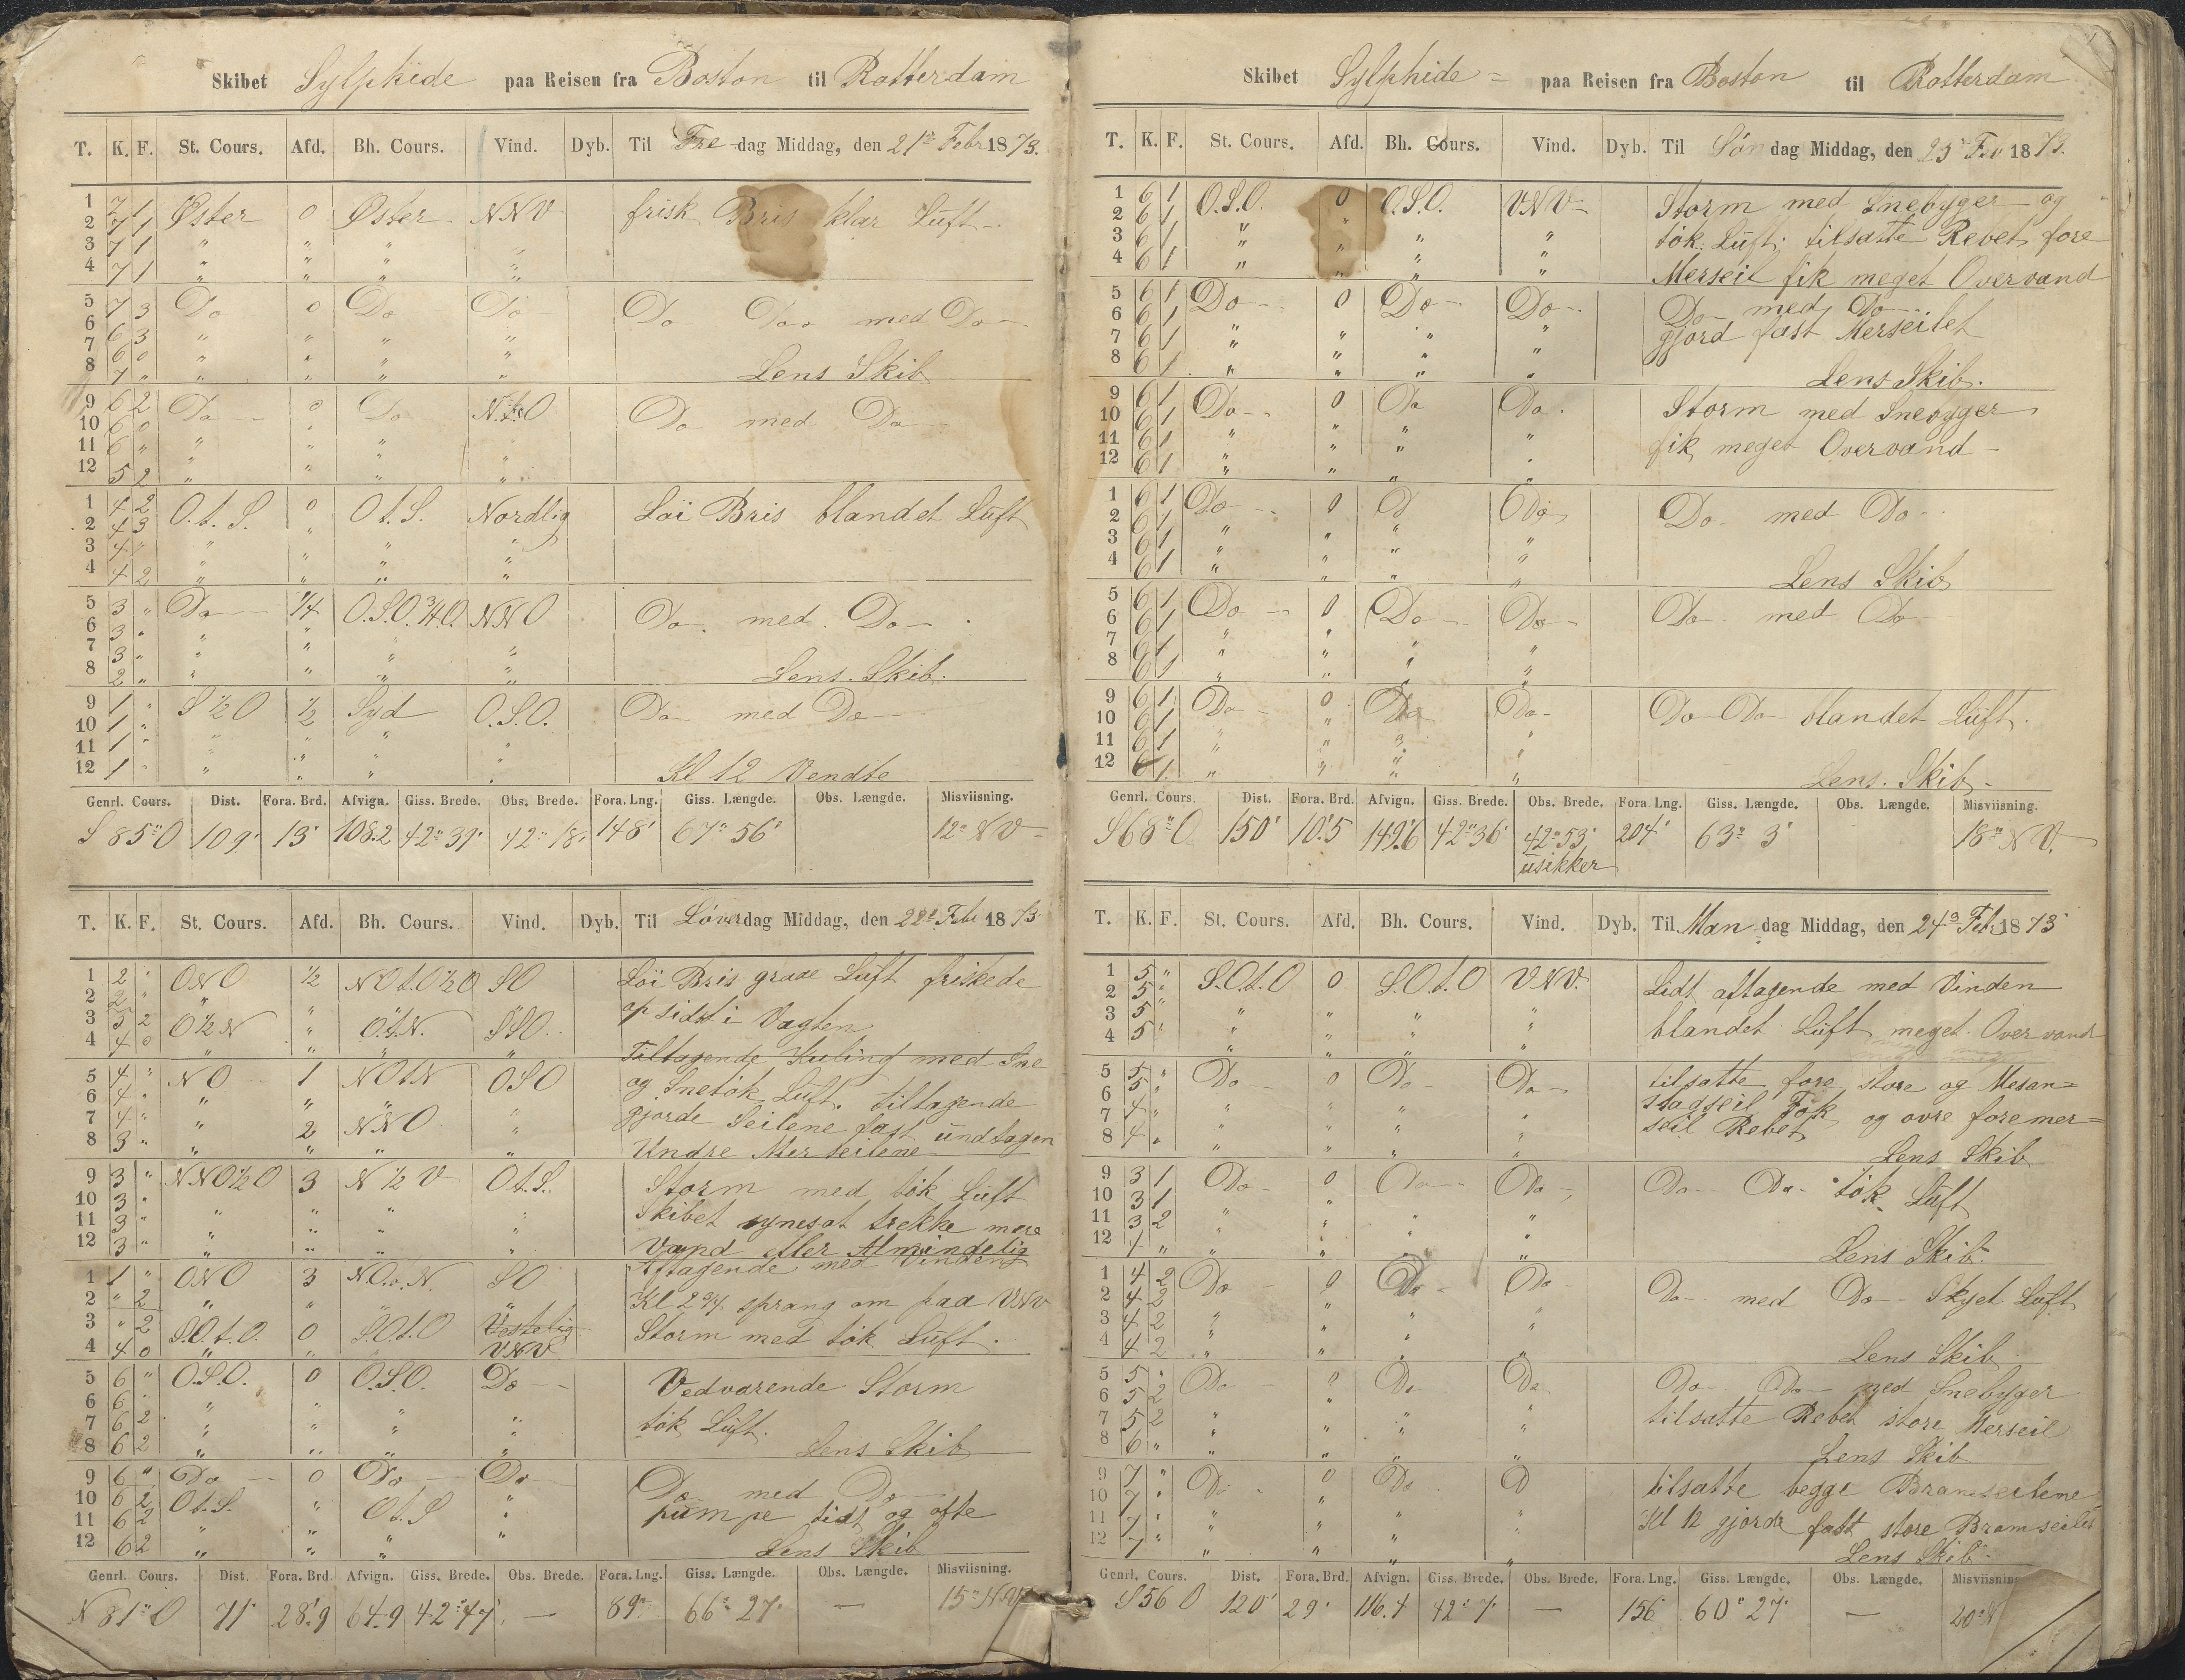 Skibet Sylphide paa Reisen fra Boston til Rotterdam
T. K. F. St. Cours. Afd. Bh. Cours. Vind. Dyb. Til Fre-dag Middag, den 21de Febr 1873.
1 7 1 Øster 0 Øster NNV frisk Bris klar Luft
2 7 1
3 7 1 " " " "
4 7 1 " " " "
5 7 3 Do 0 Do Do Do Do med Do
6 6 3 " " " "
7 6 0 " " " "
8 7 " " " " " Lens Skib
9 6 2 Do 0 Do N.t.O Do med Do
10 6 0
11 6 " " " " "
12 5 2 " " " "
1 4 2 O.t.S. 0 O.t.S. Nordlig Løi Bris blandet Luft
2 4 3
3 4 " " " " "
4 4 2 " " " "
5 3 " Do 1/4 O.S.O.3/4O. NNO Do med Do
6 3 "
7 3 " " " " "
8 2 " " " " " Lens Skib.
9 1 " S 1/2 O 1/2 Syd O.S.O. Do med Do
10 1 "
11 1 " " " " "
12 1 " " " " " Kl 12 Vendte
Genrl. Cours. Dist. Fora. Brd. Afvign. Giss. Brede. Obs. Brede. Fora. Lng. Giss. Længde. Obs. Længde. Misviisning.
S 85° O 109' 13' 108.2 42° 39' 42° 18' 148' 67° 56' 12° NV
T. K. F. St. Cours. Afd. Bh. Cours. Vind. Dyb. Til Løverdag Middag, den 22de Febr 1873
1 2 " ONO 1/2 NOt.O1/2O SO Løi Bris graae Luft friskede
2 2 " op sidst i Vagten
3 3 2 O 1/2 N " O.t.N. SSO.
4 4 0 " " " " Tiltagende Kuling med Sne
5 4 " NO 1 NOtN OSO og Snetøk Luft. tiltagende
6 4 " " " " "
7 4 " " 2 NNO " gjorde Seilene fast undtagen
8 3 " " " " " Undre Merseilene
9 3 " NNO1/2O 3 N 1/2 V O.t.S. Storm med tøk Luft
10 3 " Skibet synes at trekke mere
11 3 " " " " "
12 3 " " " " " Vand efter Almindelig
1 1 " ONO 3 N.O.t.N. SO Aftagende med Vinden
2 " 2 " " " " Kl 2 3/4 sprang om paa VNV
3 " 2 S.O.t.O. 0 S.O.t.O Vestelig Storm med tøk Luft.
4 4 0 " " " VNV
5 6 " O.S.O. 0 O.S.O. Do Vedvarende Storm
6 6 " " " " "
7 6 2 " " " " tøk Luft.
8 6 2 " " " " Lens Skib
9 6 " Do 0 Do Do Do med Do
10 6 2 Ot.S. " Ot.S " pumpe tidt og ofte
11 6 2
12 6 2 " " " " Lens Skib
Genrl. Cours. Dist. Fora. Brd. Afvign. Giss. Brede. Obs. Brede. Fora. Lng. Giss. Længde. Obs. Længde. Misviisning.
N 81° O 71' 28'.9 64.9 42° 47' — 89' 66° 27' — 15° NV
Skibet Sylphide paa Reisen fra Boston til Rotterdam
T. K. F. St. Cours. Afd. Bh. Cours. Vind. Dyb. Til Søndag Middag, den 23' Feb 1873.
1 6 1 O.S.O. 0 O.S.O. VNV Storm med Snebyger og
2 6 1
3 6 1 " " " " tøk Luft; tilsatte Revet fore
4 6 1 " " " " Merseil fik meget Overvand
5 6 1 Do 0 Do Do Do med Do
6 6 1 gjord fast Merseilet
7 6 1 " " " "
8 6 1 " " " " Lens Skib.
9 6 1 Do 0 Do Do Storm med Snebyger
10 6 1
11 6 1 " " " " fik meget Overvand
12 6 1 " " " "
1 6 1 Do 0 D Do Do med Do
2 6 1
3 6 1 " " " "
4 6 1 " " " " Lens Skib
5 6 1 Do 0 Do Do Do med Do
6 6 1
7 6 1 " " " "
8 6 1 " " " "
9 6 1 Do 0 Do Do Do Do blandet Luft
10 6 1
11 6 1 " " " "
12 6 1 " " " " Lens. Skib
Genrl. Cours. Dist. Fora. Brd. Afvign. Giss. Brede. Obs. Brede. Fora. Lng. Giss. Længde. Obs. Længde. Misviisning.
S68° O 150' 10'.5 149'.6 42° 36' 42° 53' 204' 63° 3' 18° NV.
usikker
T. K. F. St. Cours. Afd. Bh. Cours. Vind. Dyb. Til Man-dag Middag, den 24de Febr 1873
1 5 " S.O.t.O 0 S.O.t.O VNV. Lidt aftagende med Vinden
2 5 "
3 5 " " " " " blandet Luft meget Overvand
4 5 " " " " "
5 5 " Do 0 Do Do tilsatte fore, store og Mesan=
6 5 " stagseil Fok og øvre foremer=
7 4 " " " " " seil Rebet
8 4 " " " " " Lens Skib
9 3 1 Do 0 Do Do Do Do tøk Luft
10 3 1
11 3 2 " " " "
12 4 " " " " " Lens Skib
1 4 2 Do 0 Do Do Do med Do Skyet Luft
2 4 2
3 4 2 " " " "
4 4 2 " " " " Lens Skib
5 5 " Do 0 Do Do Do Do med Snebyger
6 5 2 tilsatte Rebet store Merseil
7 5 2 " " " "
8 6 " " " " " Lens Skib
9 7 " D 0 Do D tilsatte begge Bramseilene
10 7 "
11 7 " " " " " Kl 12 gjorde fast store Bramseilet
12 7 " " " " " Lens Skib
Genrl. Cours. Dist. Fora. Brd. Afvign. Giss. Brede. Obs. Brede. Fora. Lng. Giss. Længde. Obs. Længde. Misviisning
S 56 O 120' 29' 116.4 42° 7' — 156' 60° 27' — 20° N